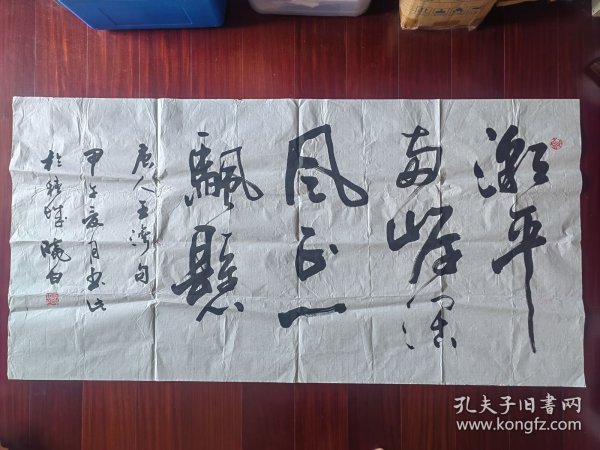 潮平
两岸阔
风正一
颿懸
唐人王湾句
甲午夏月书此
於
孔夫子旧书网
www.kongfz.com